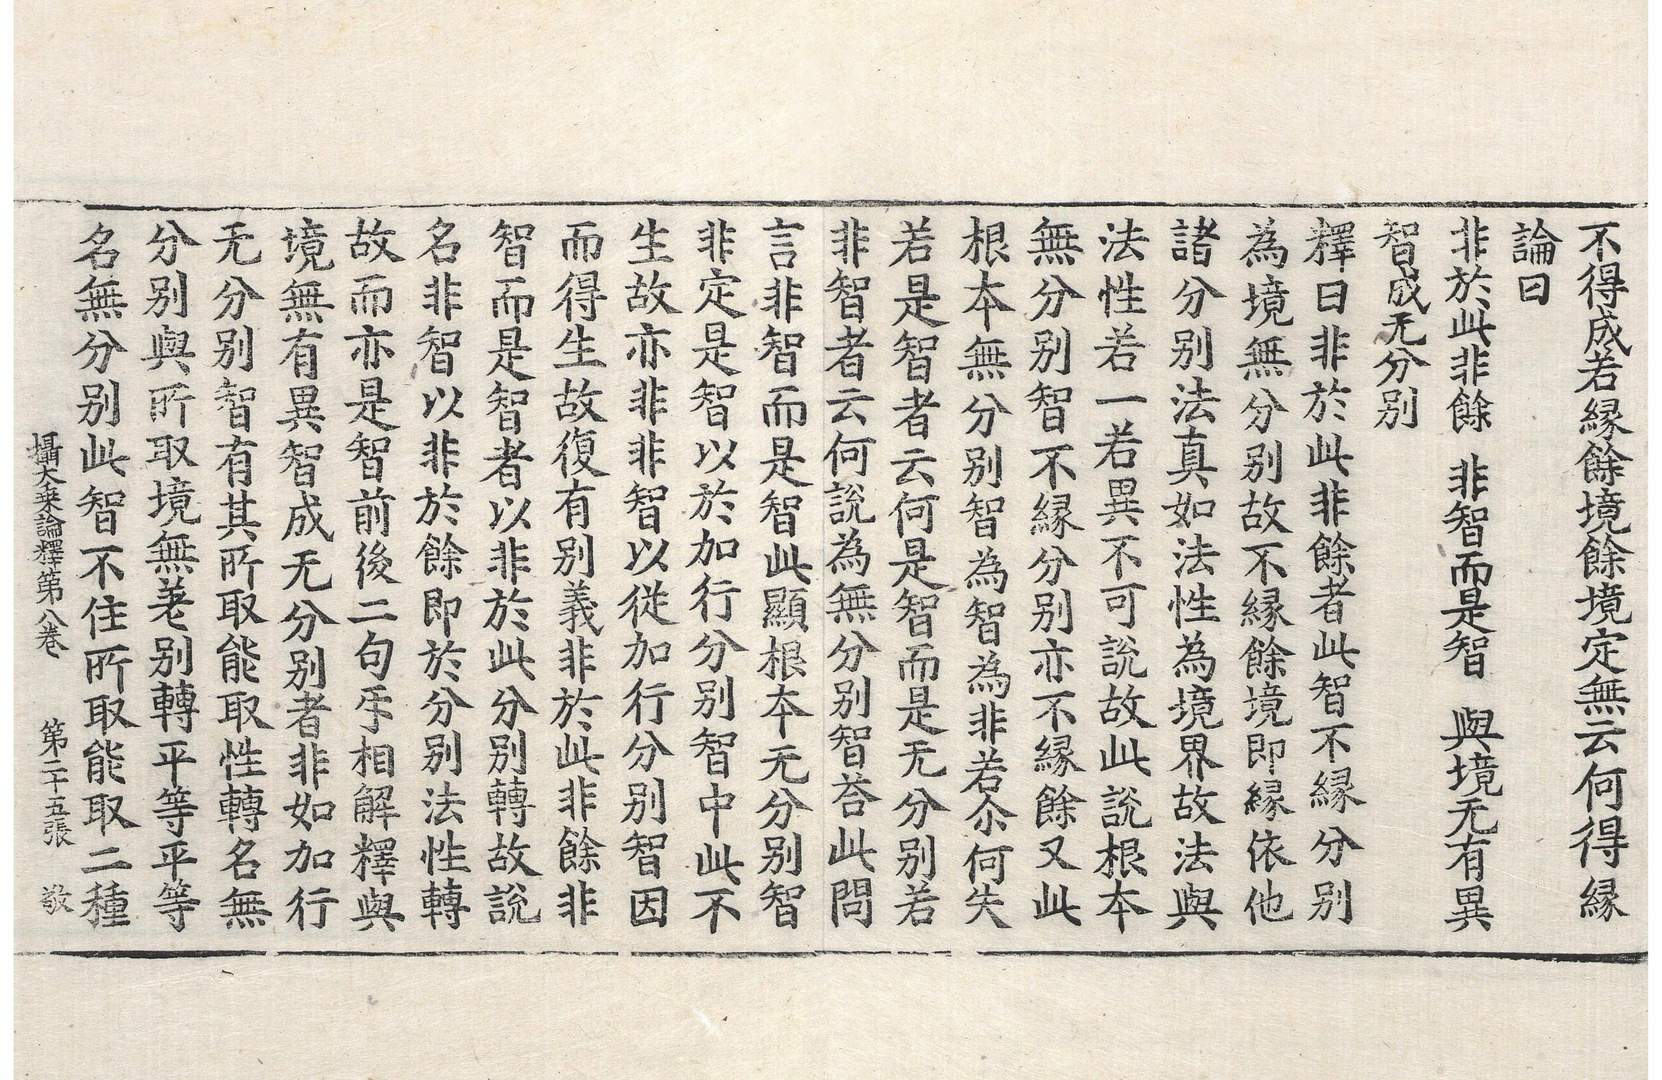 不得成若縁餘境餘境定無云何得縁
論曰
非於此非餘 非智而是智 與境无有異
智成无分别
釋曰非於此非餘者此智不縁分别
為境無分别故不縁餘境即縁依他
諸分别法真如法性為境界故法與
法性若一若異不可說故此說根本
無分别智不縁分别亦不縁餘又此
根本無分别智為智為非若尒何失
若是智者云何是智而是无分别若
非智者云何說為無分别智荅此問
言非智而是智此顯根本无分别智
非定是智以於加行分别智中此不
生故亦非非智以從加行分别智因
而得生故復有别義非於此非餘非
智而是智者以非於此分别轉故說
名非智以非於餘即於分别法性轉
故而亦是智前後二句㸦相解釋與
境無有異智成无分别者非如加行
无分别智有其所取能取性轉名無
分别與所取境無差别轉平等平等
名無分别此智不住所取能取二種
攝大乘論釋第八卷 第二十五張 敬